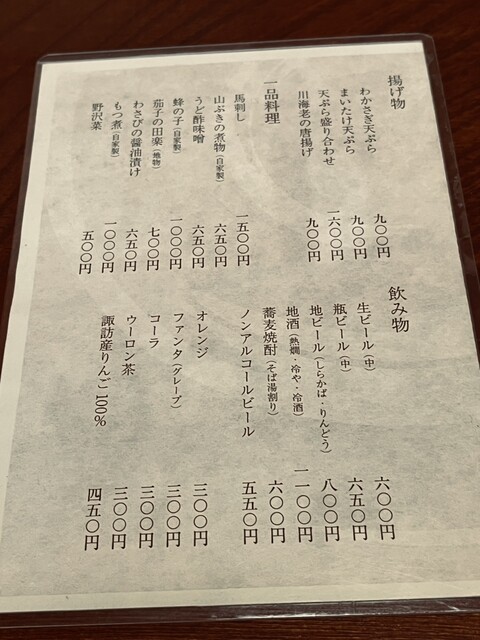 揚げ物
わかさぎ天ぷら 九〇〇円
まいたけ天ぷら 九〇〇円
天ぷら盛り合わせ 一六〇〇円
川海老の唐揚げ 九〇〇円
一品料理
馬刺し 一五〇〇円
山ぶきの煮物（自家製） 六五〇円
うど酢味噌 六五〇円
蜂の子（自家製） 一〇〇〇円
茄子の田楽（地物） 七〇〇円
わさびの醤油漬け 六五〇円
もつ煮（自家製） 一〇〇〇円
野沢菜 五〇〇円
飲み物
生ビール（中） 六〇〇円
瓶ビール（中） 六五〇円
地ビール（しらかば・りんどう） 八〇〇円
地酒（熱燗・冷や・冷酒） 一一〇〇円
蕎麦焼酎（そば湯割り） 六〇〇円
ノンアルコールビール 五五〇円
オレンジ 三〇〇円
ファンタ（グレープ） 三〇〇円
コーラ 三〇〇円
ウーロン茶 三〇〇円
諏訪産りんご100% 四五〇円